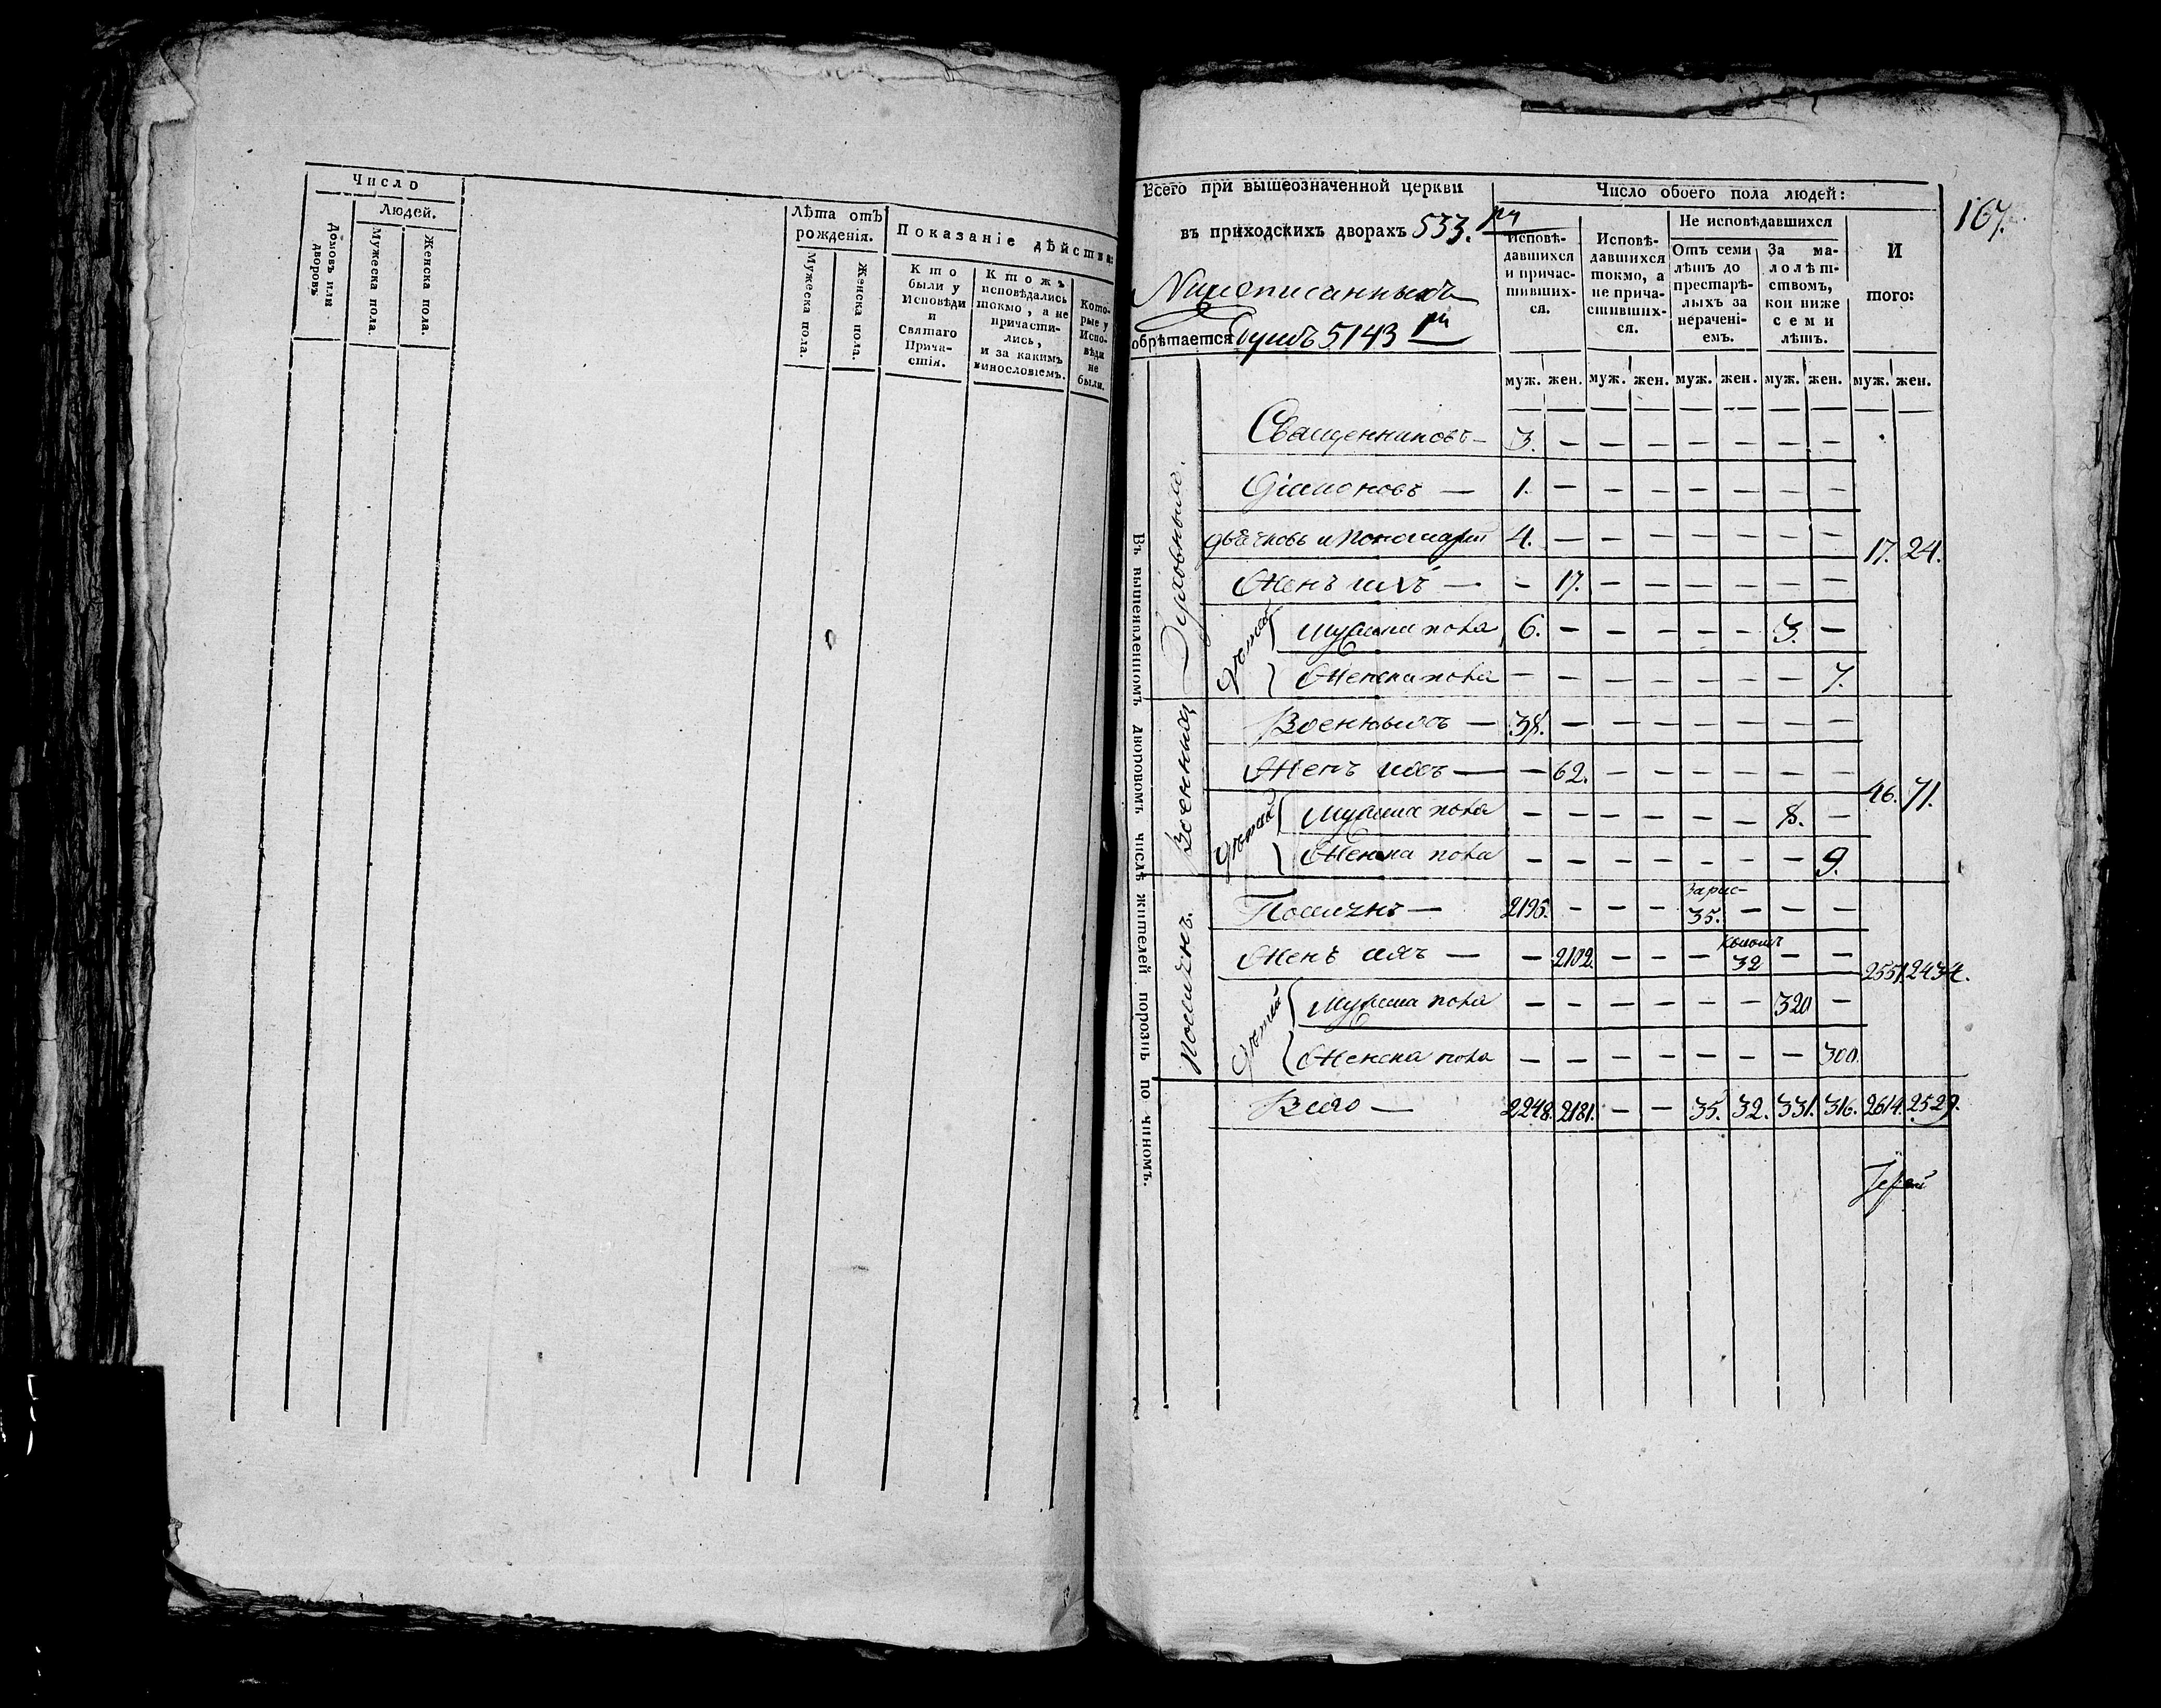 Число
Людей.
Домовъ или дворовъ
Мужеска пола.
Женска пола.
Лѣта отъ
рожденія.
Мужеска пола.
Женска пола.
Показаніе дѣйства:
Кто
были у
Исповѣди
и
Святаго
Прича-
стія.
Ктожъ
исповѣдались
токмо, а не
причасти-
лись,
и за какимъ
винословіемъ.
Кото-
рые у
Испо-
вѣди
не
были.
167.
Всего при вышеозначенной церкви
въ приходскихъ дворахъ 533.
обрѣтается Душъ 5143
Число обоего пола людей:
Исповѣ-
давшихся
и причас-
тивших-
ся.
Исповѣ-
давшихся
токмо, а
не прича-
стивших-
ся.
Не исповѣдавшихся
Отъ семи
лѣтъ до
престарѣ-
лыхъ за
нерачені-
емъ.
За ма-
лолѣт-
ствомъ,
кои ниже
семи
лѣтъ.
И
того:
муж. жен. муж. жен. муж. жен. муж. жен. муж. жен.
Въ вышеявленномъ дворовомъ числѣ жителей порознь по чиномъ.
Духовныхъ.
Священниковъ — 3. — — — — — — —
Діаконовъ — 1. — — — — — — —
Дьячковъ и Пономарей 4. — — — — — — — 17. 24.
Женъ ихъ — — 17. — — — — — —
Дѣтей
Мужеска пола 6. — — — — — 3. —
Женска пола — — — — — — — 7.
Военныхъ
Военныхъ — 38. — — — — — — —
Женъ ихъ — — 62. — — — — — — 46. 71.
Дѣтей
Мужеска пола — — — — — — 8. —
Женска пола — — — — — — — 9.
2196. — — — 35. — — —
Женъ ихъ — — 2102. — — — 32 — — 2551. 2434.
Дѣтей
Мужеска пола — — — — — — 320 —
Женска пола — — — — — — — 300.
Всего — 2248. 2181. — — 35. 32. 331. 316. 2614. 2529.
Іерей